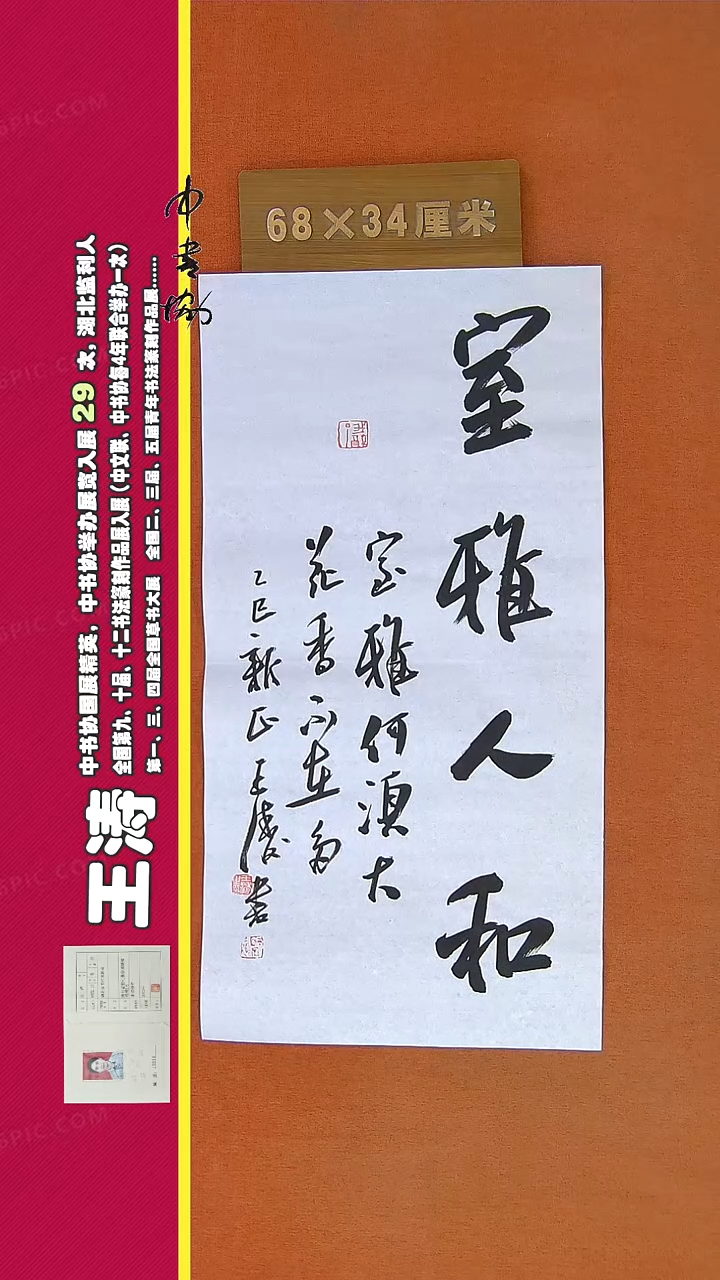 68×34厘米
室雅人和
室雅何须大
花香不在多
乙巳新正王涛书
中书协
王涛
中书协国展精英，中书协举办展览入展 29 次，湖北监利人
全国第九、十届、十二书法篆刻作品展入展（中文联、中书协每4年联合举办一次）
第一、三、四届全国草书大展 全国二、三届、五届青年书法篆刻作品展……